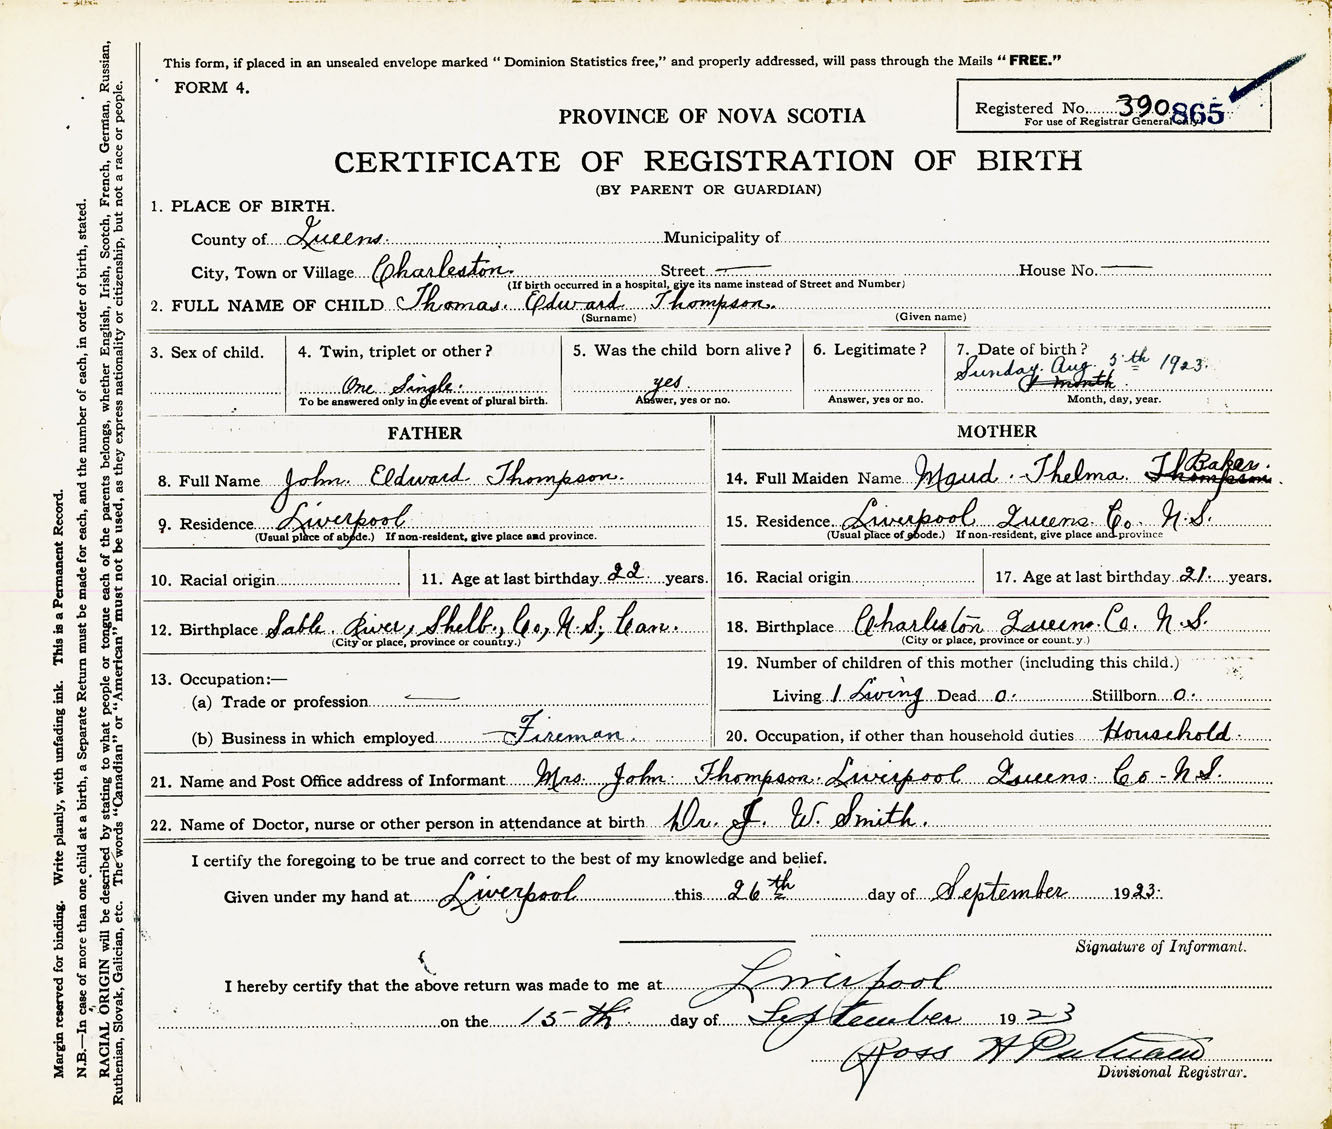 This form, if placed in an unsealed envelope marked “ Dominion Statistics free,” and properly addressed, will pass through the Mails “ FREE.”
FORM 4.
Registered No. 390 865
For use of Registrar General only
PROVINCE OF NOVA SCOTIA
CERTIFICATE OF REGISTRATION OF BIRTH
(BY PARENT OR GUARDIAN)
1. PLACE OF BIRTH.
County of Queens. Municipality of
City, Town or Village Charleston. Street — House No. —
(If birth occurred in a hospital, give its name instead of Street and Number)
2. FULL NAME OF CHILD Thomas. Edward Thompson.
(Surname) (Given name)
3. Sex of child. 4. Twin, triplet or other ? 5. Was the child born alive ? 6. Legitimate ? 7. Date of birth ?
Sunday. Aug. 5th 1923.
One Single. yes. month.
To be answered only in the event of plural birth. Answer, yes or no. Answer, yes or no. Month, day, year.
FATHER MOTHER
8. Full Name John. Eldward Thompson. 14. Full Maiden Name Maud. Thelma. Thompson Baker.
9. Residence Liverpool 15. Residence. Liverpool Queens Co. N.S.
(Usual place of abode.) If non-resident, give place and province. (Usual place of abode.) If non-resident, give place and province
10. Racial origin 11. Age at last birthday 22 years. 16. Racial origin 17. Age at last birthday 21. years.
12. Birthplace Sable. River, Shelb., Co, N.S, Can. 18. Birthplace Charleston Queens. Co. N.S.
(City or place, province or country.) (City or place, province or country.)
13. Occupation:— 19. Number of children of this mother (including this child.)
(a) Trade or profession — Living 1 Living Dead 0. Stillborn 0.
(b) Business in which employed Fireman. 20. Occupation, if other than household duties Household.
21. Name and Post Office address of Informant Mrs. John Thompson. Liverpool Queens Co - N.S.
22. Name of Doctor, nurse or other person in attendance at birth Dr. J. W. Smith.
I certify the foregoing to be true and correct to the best of my knowledge and belief.
Given under my hand at Liverpool this 26th day of September 1923.
Signature of Informant.
I hereby certify that the above return was made to me at Liverpool
on the 15th day of September 1923
Ross H Putnam
Divisional Registrar.
Margin reserved for binding. Write plainly, with unfading ink. This is a Permanent Record.
N.B.—In case of more than one child at a birth, a Separate Return must be made for each, and the number of each, in order of birth, stated.
RACIAL ORIGIN will be described by stating to what people or tongue each of the parents belongs, whether English, Irish, Scotch, French, German, Russian,
Ruthenian, Slovak, Galician, etc. The words “Canadian” or “American” must not be used, as they express nationality or citizenship, but not a race or people.